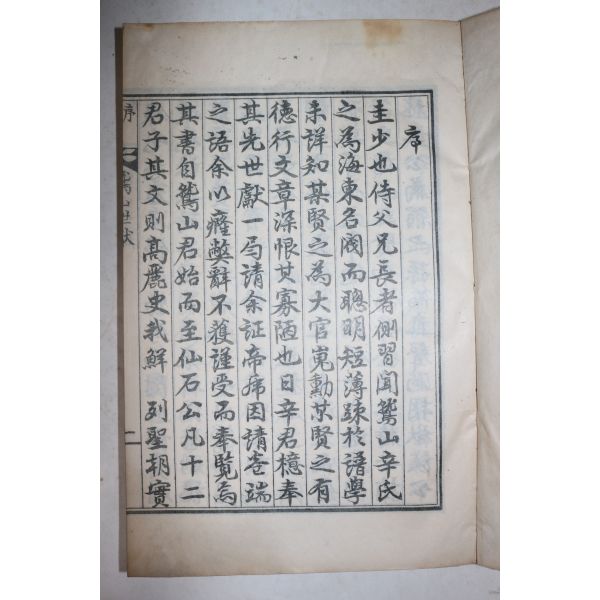 序
圭少也侍父兄長者側習聞鷲山辛氏
之為海東名閥而聰明短薄踈於譜學
未詳知某賢之為大官嵬勳某賢之有
徳行文章深恨其寡陋也日辛君檍奉
其先世獻一局請余証帝席因請卷端
之語余以癃弊辭不獲謹受而奉覧焉
其書自鷲山君始而至仙石公凡十二
君子其文則髙麗史我鮮 列聖朝實
序
一